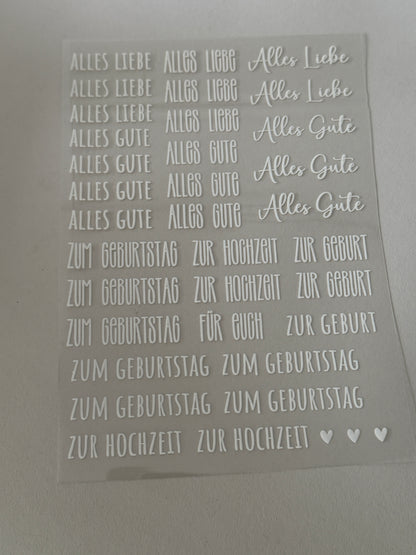 ALLES LIEBE ALLES LIEBE Alles Liebe
ALLES LIEBE ALLES LIEBE Alles Liebe
ALLES LIEBE ALLES LIEBE Alles Gute
ALLES GUTE ALLES GUTE Alles Gute
ALLES GUTE ALLES GUTE Alles Gute
ALLES GUTE ALLES GUTE
ZUM GEBURTSTAG ZUR HOCHZEIT ZUR GEBURT
ZUM GEBURTSTAG ZUR HOCHZEIT ZUR GEBURT
ZUM GEBURTSTAG FÜR EUCH ZUR GEBURT
ZUM GEBURTSTAG ZUM GEBURTSTAG
ZUM GEBURTSTAG ZUM GEBURTSTAG
ZUR HOCHZEIT ZUR HOCHZEIT